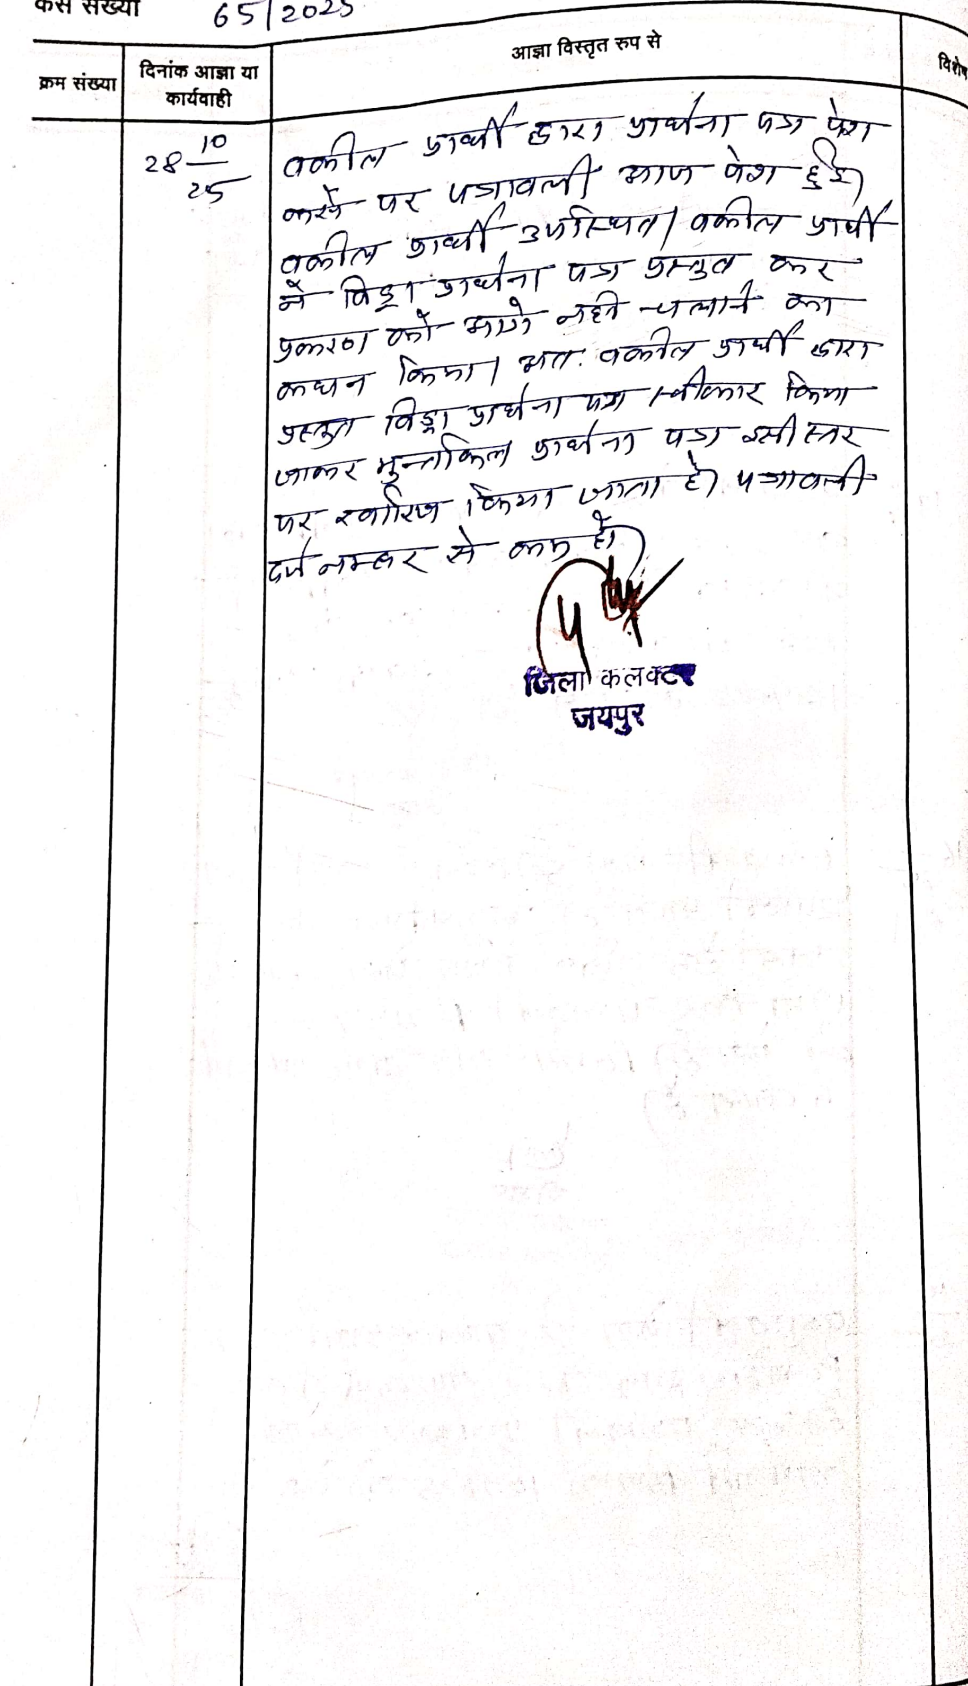 केस संख्या 65/2025
क्रम संख्या
दिनांक आज्ञा या
कार्यवाही
आज्ञा विस्तृत रुप से
विशेष
28 10/25
वकील प्रार्थी द्वारा प्रार्थना पत्र पेश
करने पर पत्रावली आज पेश हुई।
वकील प्रार्थी उपस्थित। वकील प्रार्थी
ने विड्रा प्रार्थना पत्र प्रस्तुत कर
प्रकरण को आगे नही चलाने का
कथन किया। अतः वकील प्रार्थी द्वारा
प्रस्तुत विड्रा प्रार्थना पत्र स्वीकार किया
जाकर मुन्तकिल प्रार्थना पत्र इसी स्तर
पर खारिज किया जाता है। पत्रावली
दर्ज नम्बर से कम हो।
जिला कलक्टर
जयपुर